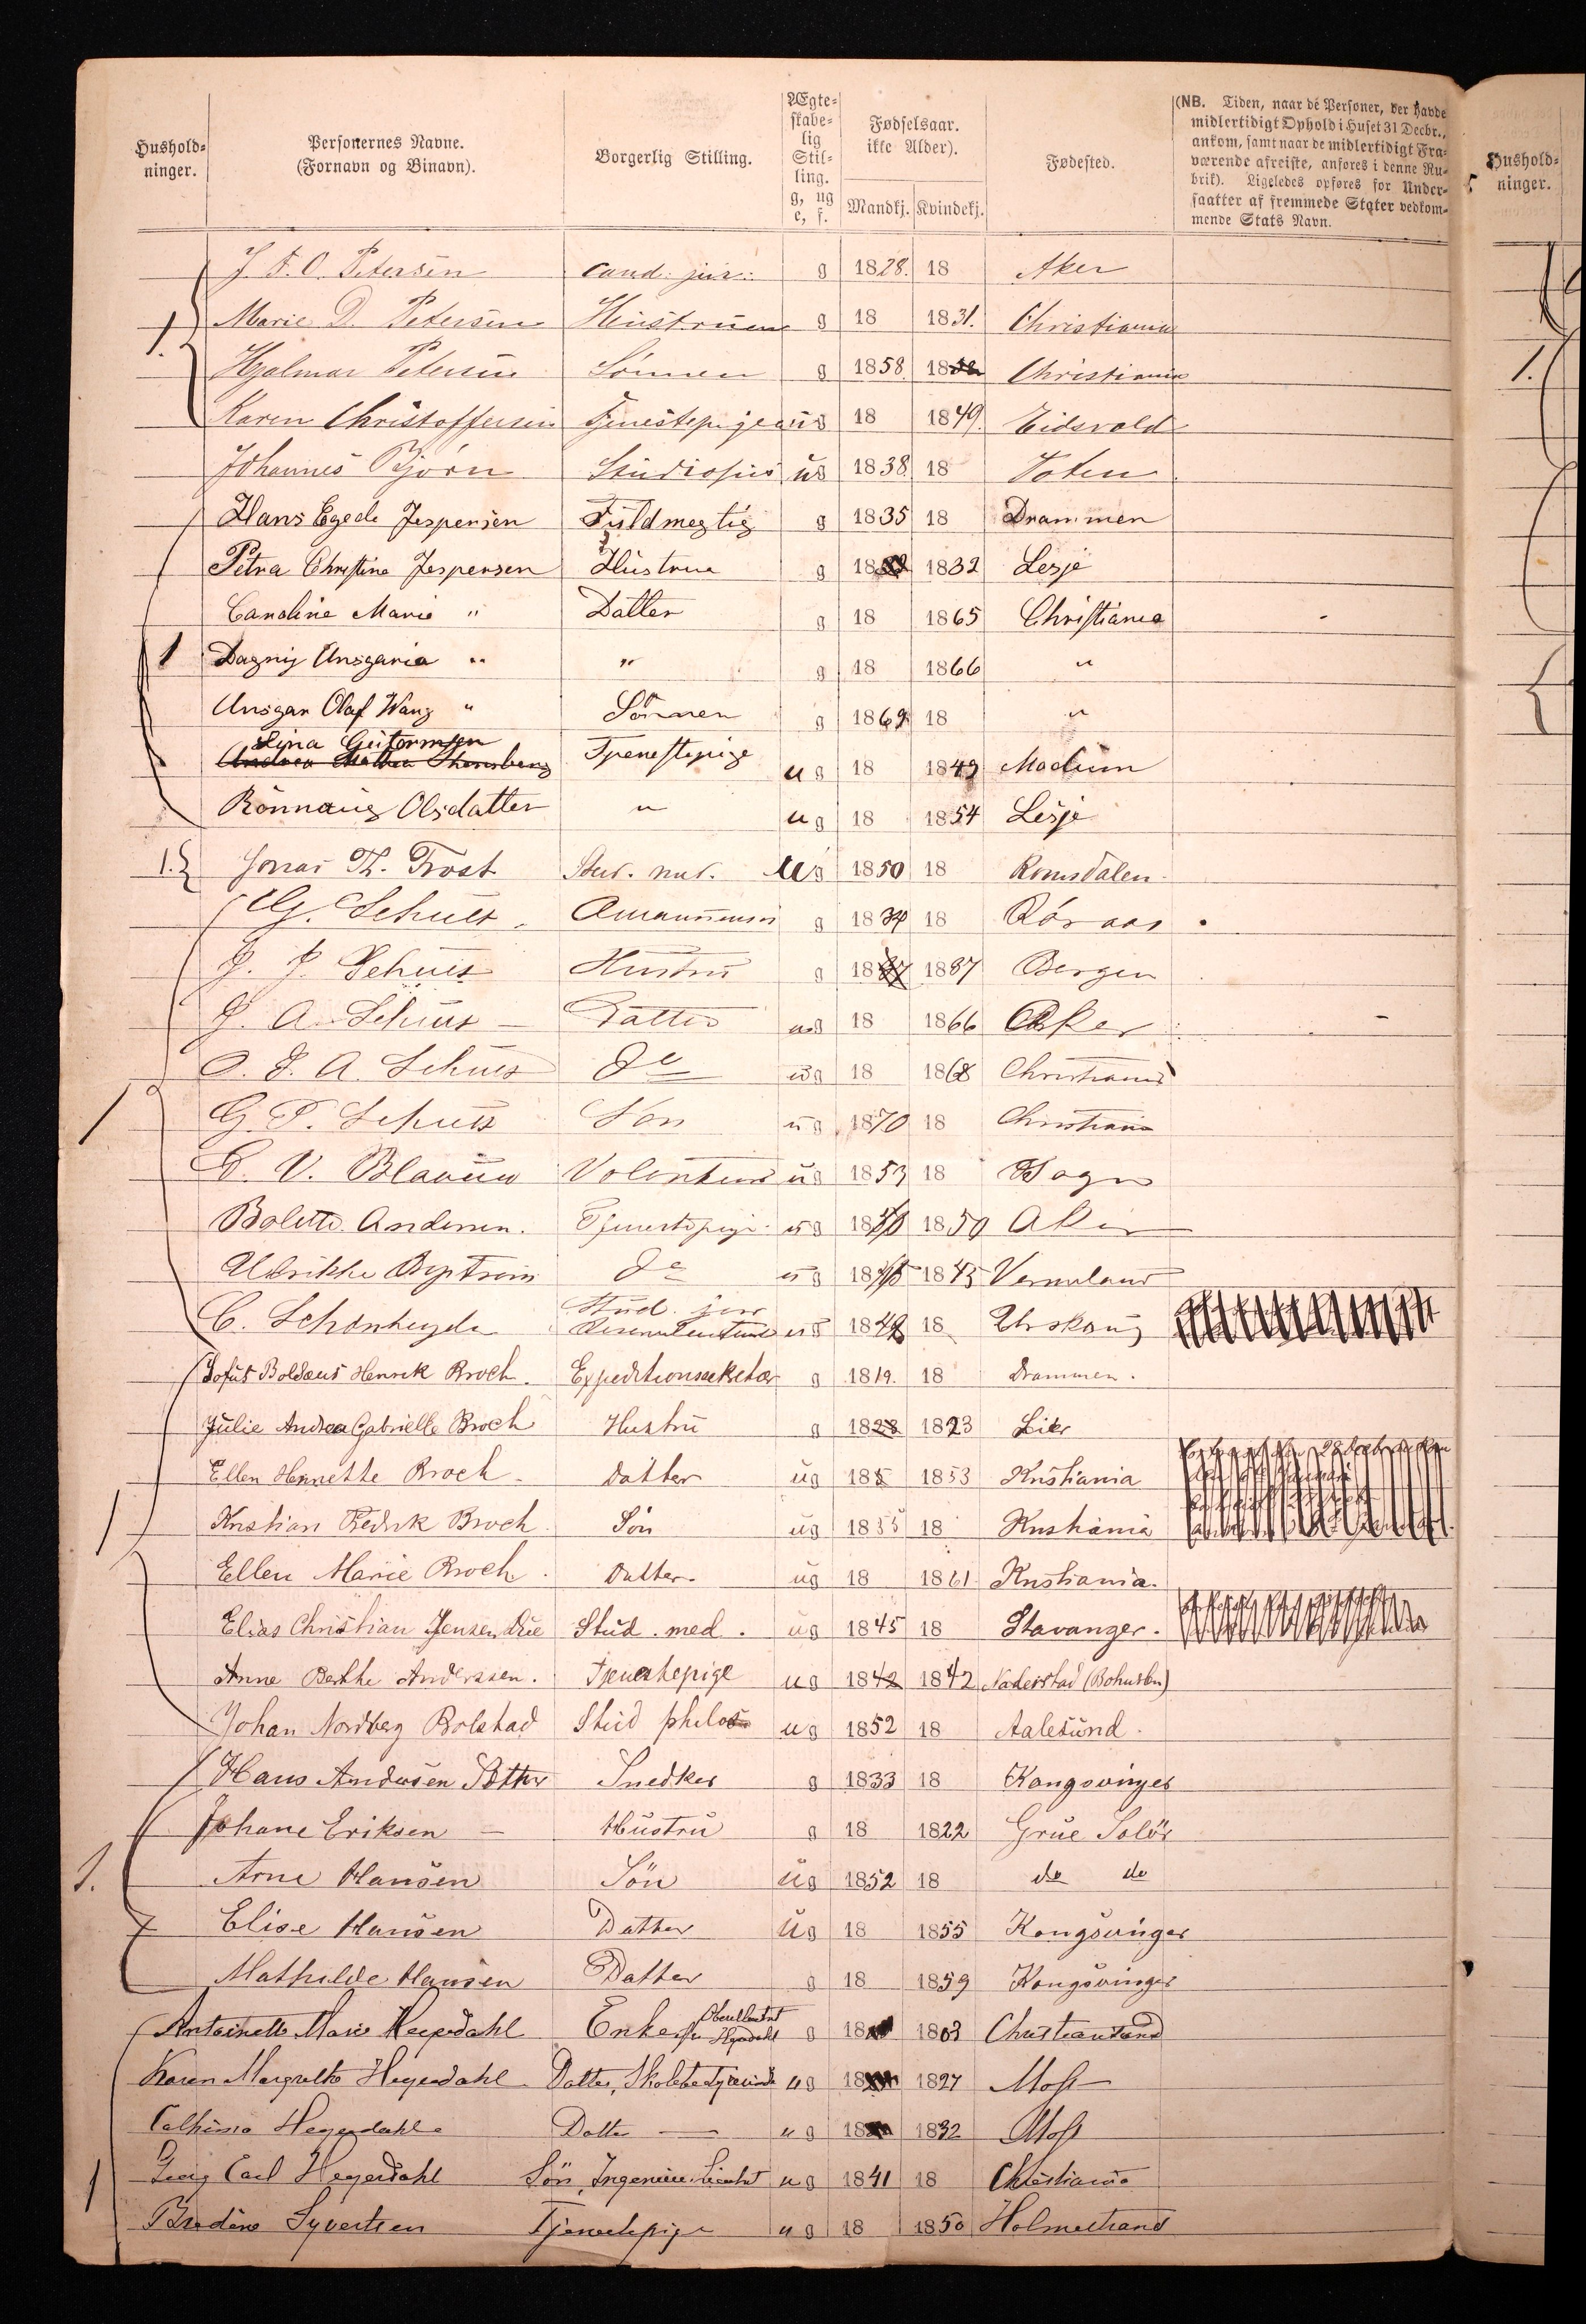 Hushold-
ninger.
Personernes Navne.
(Fornavn og Binavn).
Borgerlig Stilling.
Ægte-
skabe-
lig
Stil-
ling.
g, ug
e, f.
Fødselsaar.
ikke Alder).
Mandkj. Kvindekj.
Fødested.
(NB. Tiden, naar de Personer, der havde
midlertidigt Ophold i Huset 31 Decbr.,
ankom, samt naar de midlertidigt Fra-
værende afreiste, anføres i denne Ru-
brik). Ligeledes opføres for Under-
saatter af fremmede Stater vedkom-
mende Stats Navn.
Hushold-
ninger.
J. F. O. Petersen cand. jur. g 1828. 18 Aker
1. Marie D. Petersen Hustruen g 18 1831. Christiania
Hjalmar Petersen Sønnen g 1858 18 Christiania
Karen Christoffersen Tjenestepige ug 18 1849. Eidsvold
Johannes Bjørn Studiosus ug 1838 18 Toten
Hans Egede Jespersen Fuldmegtig g 1835 18 Drammen
Petra Christine Jespersen Hustrue g 18 1832 Lesje
Caroline Marie " Datter g 18 1865 Christiania
1 Dagny Ansgaria " " g 18 1866 "
Ansgar Olaf Wang " Sønnen g 1869 18 "
Lina Gutormsen
Tjenestepige ug 18 1849 Modum
Rönnaug Olsdatter " ug 18 1854 Lesje
1. Jonas Th. Trost Stud. ug 1850 18 Romsdalen
G. Schult Amanuensis g 1834 18 Röraas
J. J. Schult Hustru g 1837 1837 Bergen
J. A. Schult Datter ug 18 1866 Aker
J. A. Schult do ug 18 1868 Christiania
1 G. P. Schult Søn ug 1870 18 Christiania
V. Blauuw Volontør ug 1853 18 Sogn
Bolette Andersen. Tjenestepige ug 1850 1850 Aker
Ulrikke Byström do ug 1845 1845 Vermland
C. Schönheyde Stud. jur ug 18 18 Urskoug
Sofus Boldæus Henrik Broch. Expeditionssekretær g 1819. 18 Drammen.
Julie Andrea Gabrielle Broch Hustru g 1823 1823 Lier
Ellen Henriette Broch. Datter ug 185 1853 Kristiania
1 Kristian Fredrik Broch. Søn ug 1855 18 Kristiania
Ellen Marie Broch. Datter. ug 18 1861 Kristiania.
Elias Christian Jensen Due Stud. med. ug 1845 18 Stavanger.
Anne Berthe Anderssen. Tjenestepige ug 1842 1842 Naderstad (Bohuslen)
Johan Nordberg Bolstad Stud philos ug 1852 18 Aalesund.
Hans Andersen Snedker g 1833 18 Kongsvinger
Johane Eriksen Hustru g 18 1822 Grue Solör
1. Arne Hansen Sön ug 1852 18 do do
Elise Hansen Datter ug 18 1855 Kongsvinger
Mathilde Hansen Datter g 18 1859 Kongsvinger
Antoinette Marie Heyerdahl Enke g 18 1803 Christiansand
Karen Margrethe Heyerdahl Datter, Skolebestyrerinde ug 18 1827 Moss
Cathinca Heyerdahl Datter ug 18 1832 Moss
1 Georg Carl Heyerdahl Sön, Ingenieur ug 1841 18 Christiania
Bredine Syvertsen Tjenestepige ug 18 1850 Holmestrand
1.